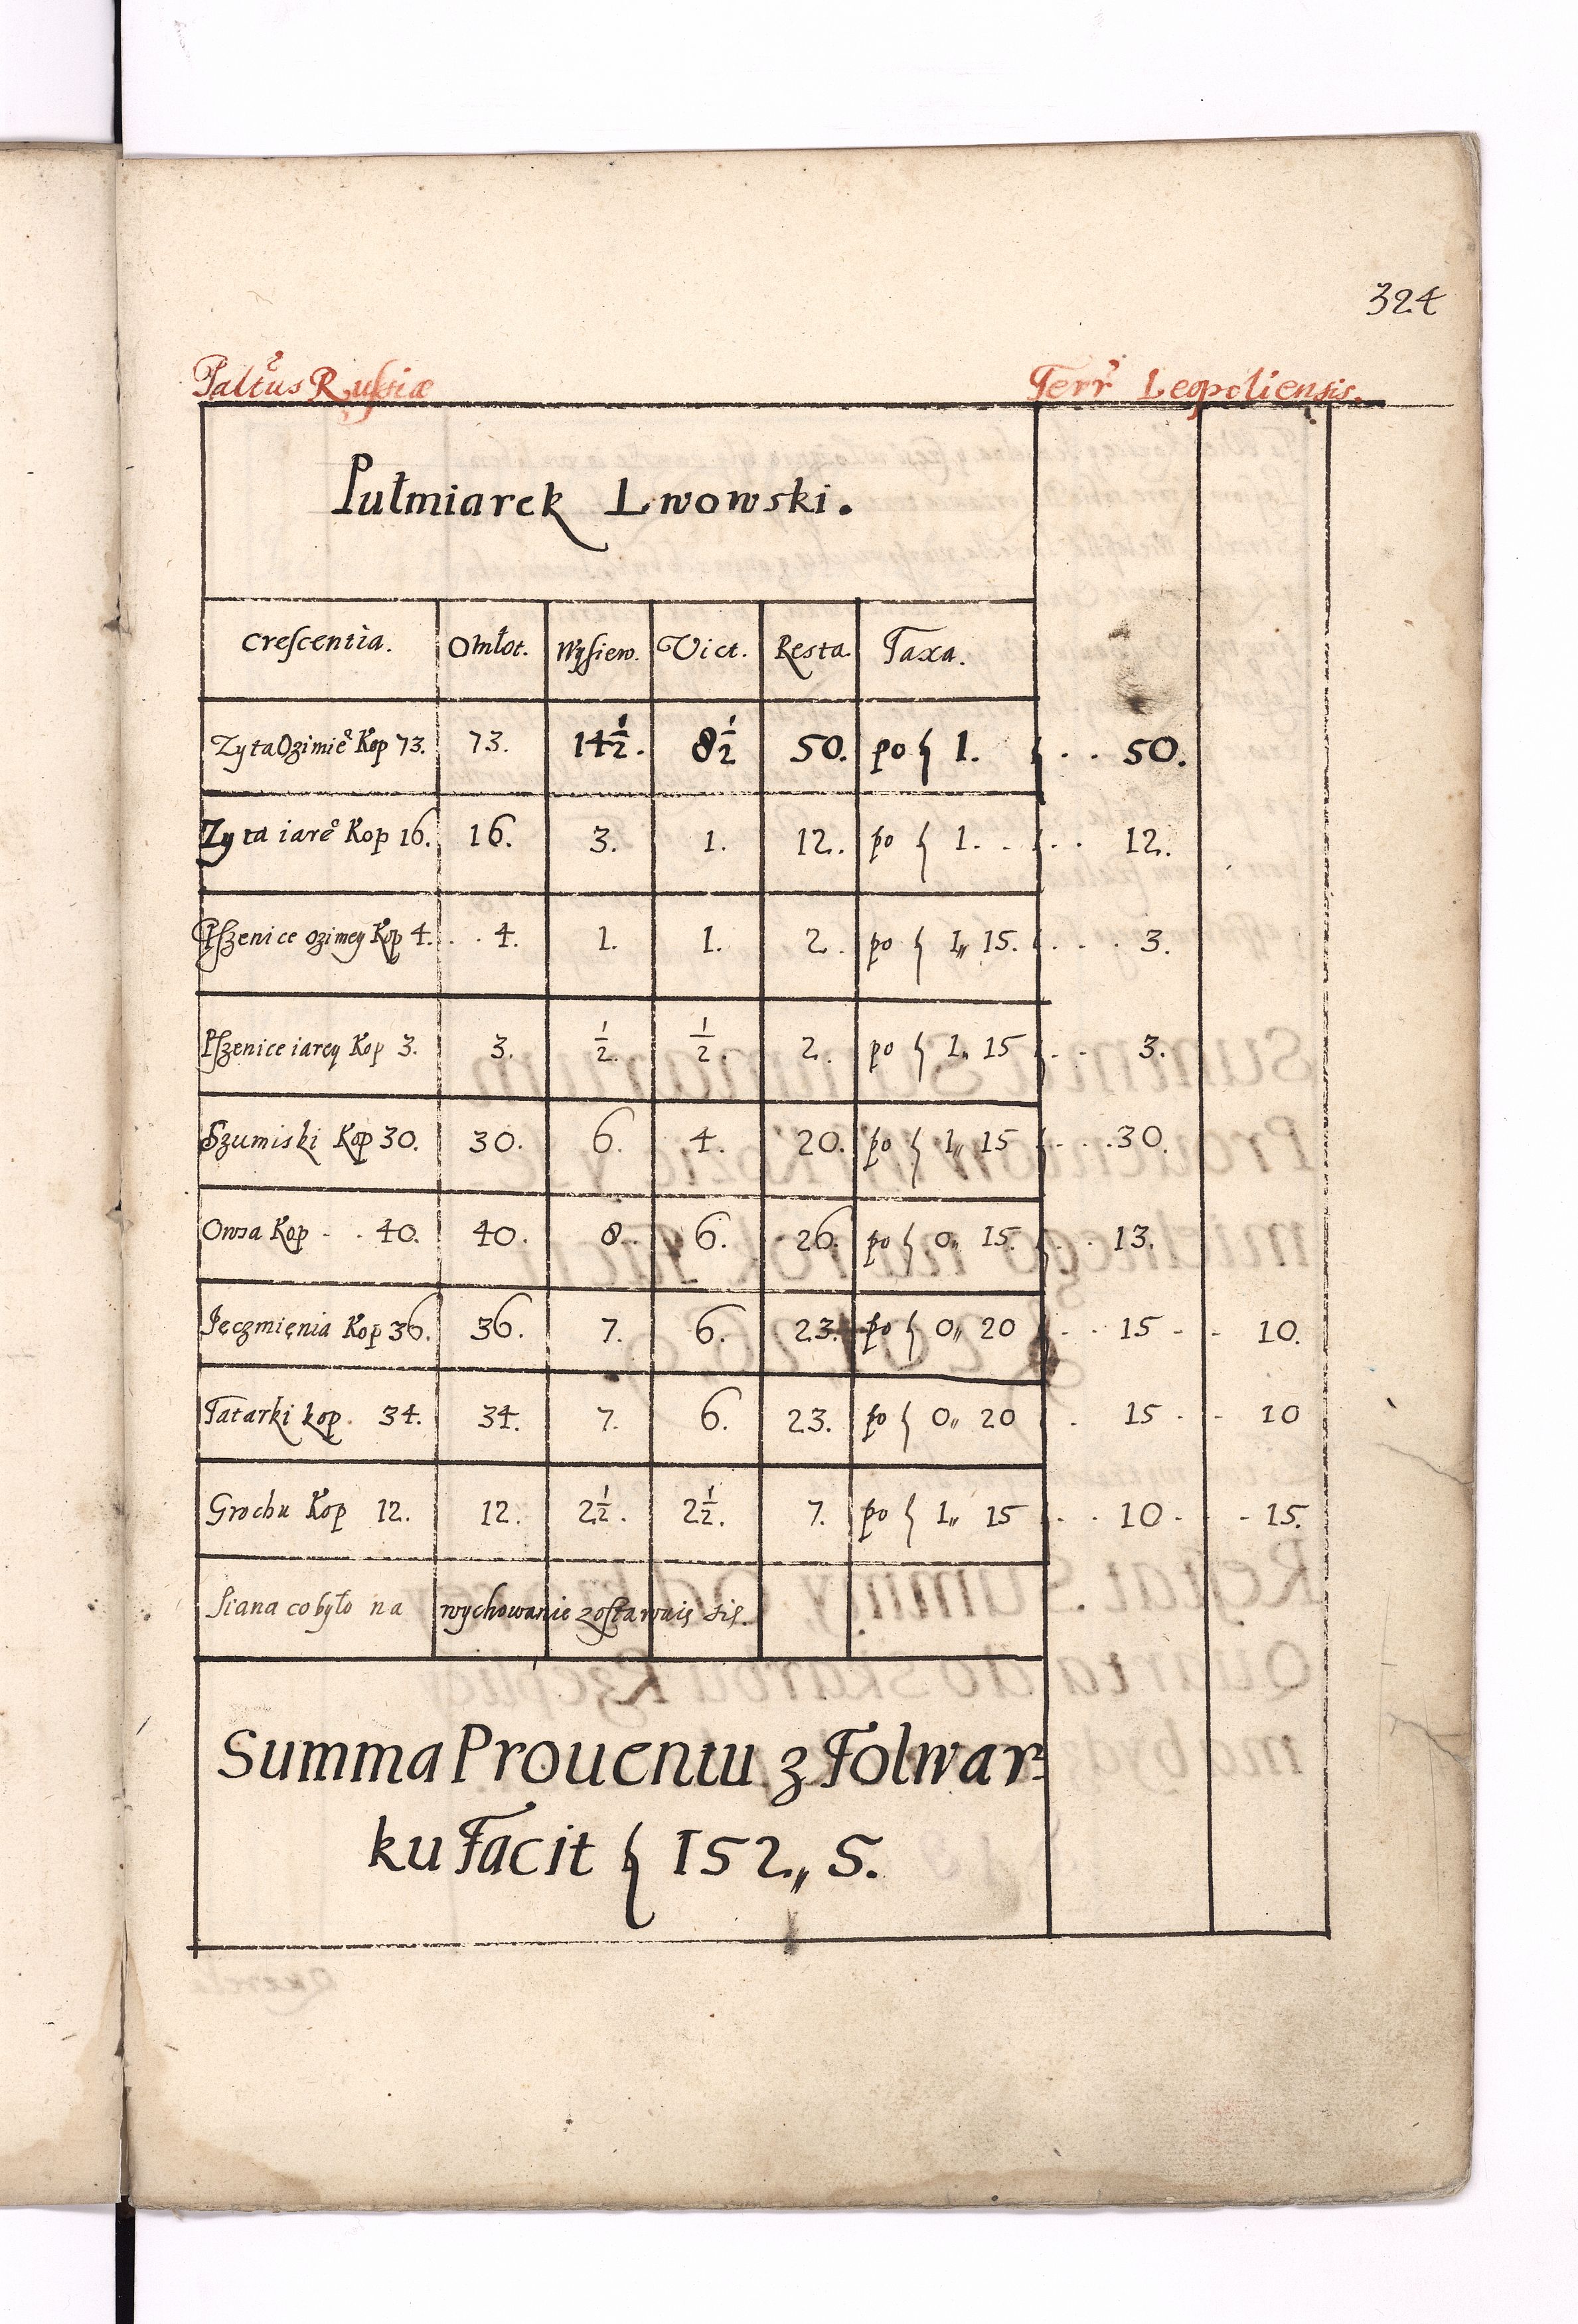 324
Palt̉us Russiæ Terr̉ Leopoliensis.
Pułmiarek Lwowski.
Crescentia. Omłot. Wysiew. Vict. Resta. Taxa.
Zyta Ozimẻ Kop 73. 73. 14½. 8½ 50. po { 1. { . . 50.
Zyta iarẻ Kop 16. 16. 3. 1. 12. po { 1. . { . . 12.
Pszenice ozimey Kop 4. . . 4. 1. 1. 2. po { 1,, 15. { . . . 3.
Pszenice iarey Kop 3. 3. ½. ½. 2. po { 1,, 15 { . . 3.
Szumiski Kop 30. 30. 6. 4. 20. po { 1,, 15 { . . . 30.
Owsa Kop . . 40. 40. 8. 6. 26. po { 0,, 15. { . . 13.
Jęczmięnia Kop 36. 36. 7. 6. 23. po { 0,, 20 { . . 15 . . 10.
Tatarki kop. 34. 34. 7. 6. 23. po { 0,, 20 . . 15 . . 10
Grochu Kop 12. 12. 2½. 2½. 7. po { 1,, 15 { . . 10 . . 15.
Siana co było na wychowanie zostawuię się.
Summa Prouentu z Folwar-
ku Facit { 152,, 5.